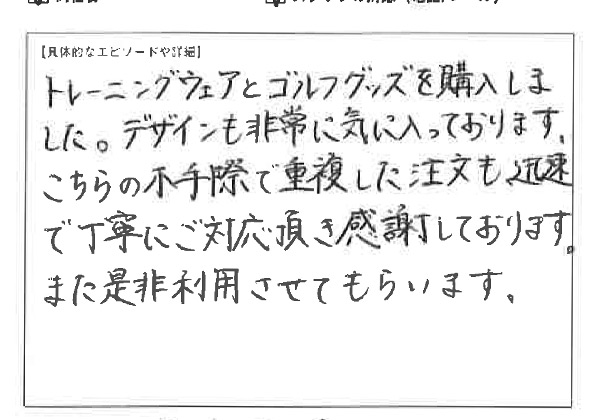 【具体的なエピソードや詳細】
トレーニングウェアとゴルフグッズを購入しま
した。デザインも非常に気に入っております。
こちらの不手際で重複した注文も迅速
で丁寧にご対応頂き感謝しております。
また是非利用させてもらいます。